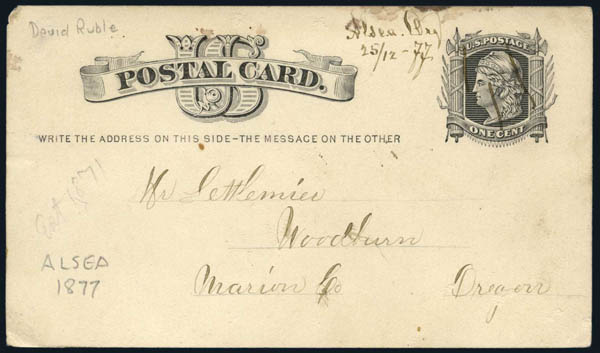 David Ruble
Alsea. Ogn
25/12-77
U.S. POSTAGE
US
POSTAL CARD.
ONE CENT
WRITE THE ADDRESS ON THIS SIDE-THE MESSAGE ON THE OTHER
Mr Settlemier
Woodburn
Marion Co Oregon
1871
ALSEA
1877